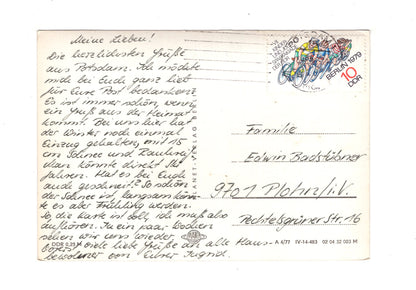 Meine Lieben!
Die herzlichsten Grüße
aus Potsdam. Ich möchte
mich bei Euch ganz lieb
für Eure Post bedanken.
Es ist immer schön, wenn
ein Gruß aus der Heimat
kommt. Bei uns hier hat
der Winter noch einmal
Einzug gehalten, mit 15
cm Schnee und Rauhreif.
Man könnte direkt Ski
fahren. Hat es bei Euch
auch geschneit? So schön
der Schnee ist, langsam könn-
te es aber Frühling werden.
So, die Karte ist voll, ich muß also
aufhören. In ein paar Wochen
sehen wir uns wieder.
viele liebe Grüße an alle Haus-
bewohner von Eurer
DDR 0,25 M
PLANET-VERLAG BERLIN
BERLIN 1979
10
DDR
Familie
Edwin Badstübner
9701 Plohn/i.V.
Pechtelsgrüner Str. 16
A 6/77 IV-14-483 02 04 32 003 M